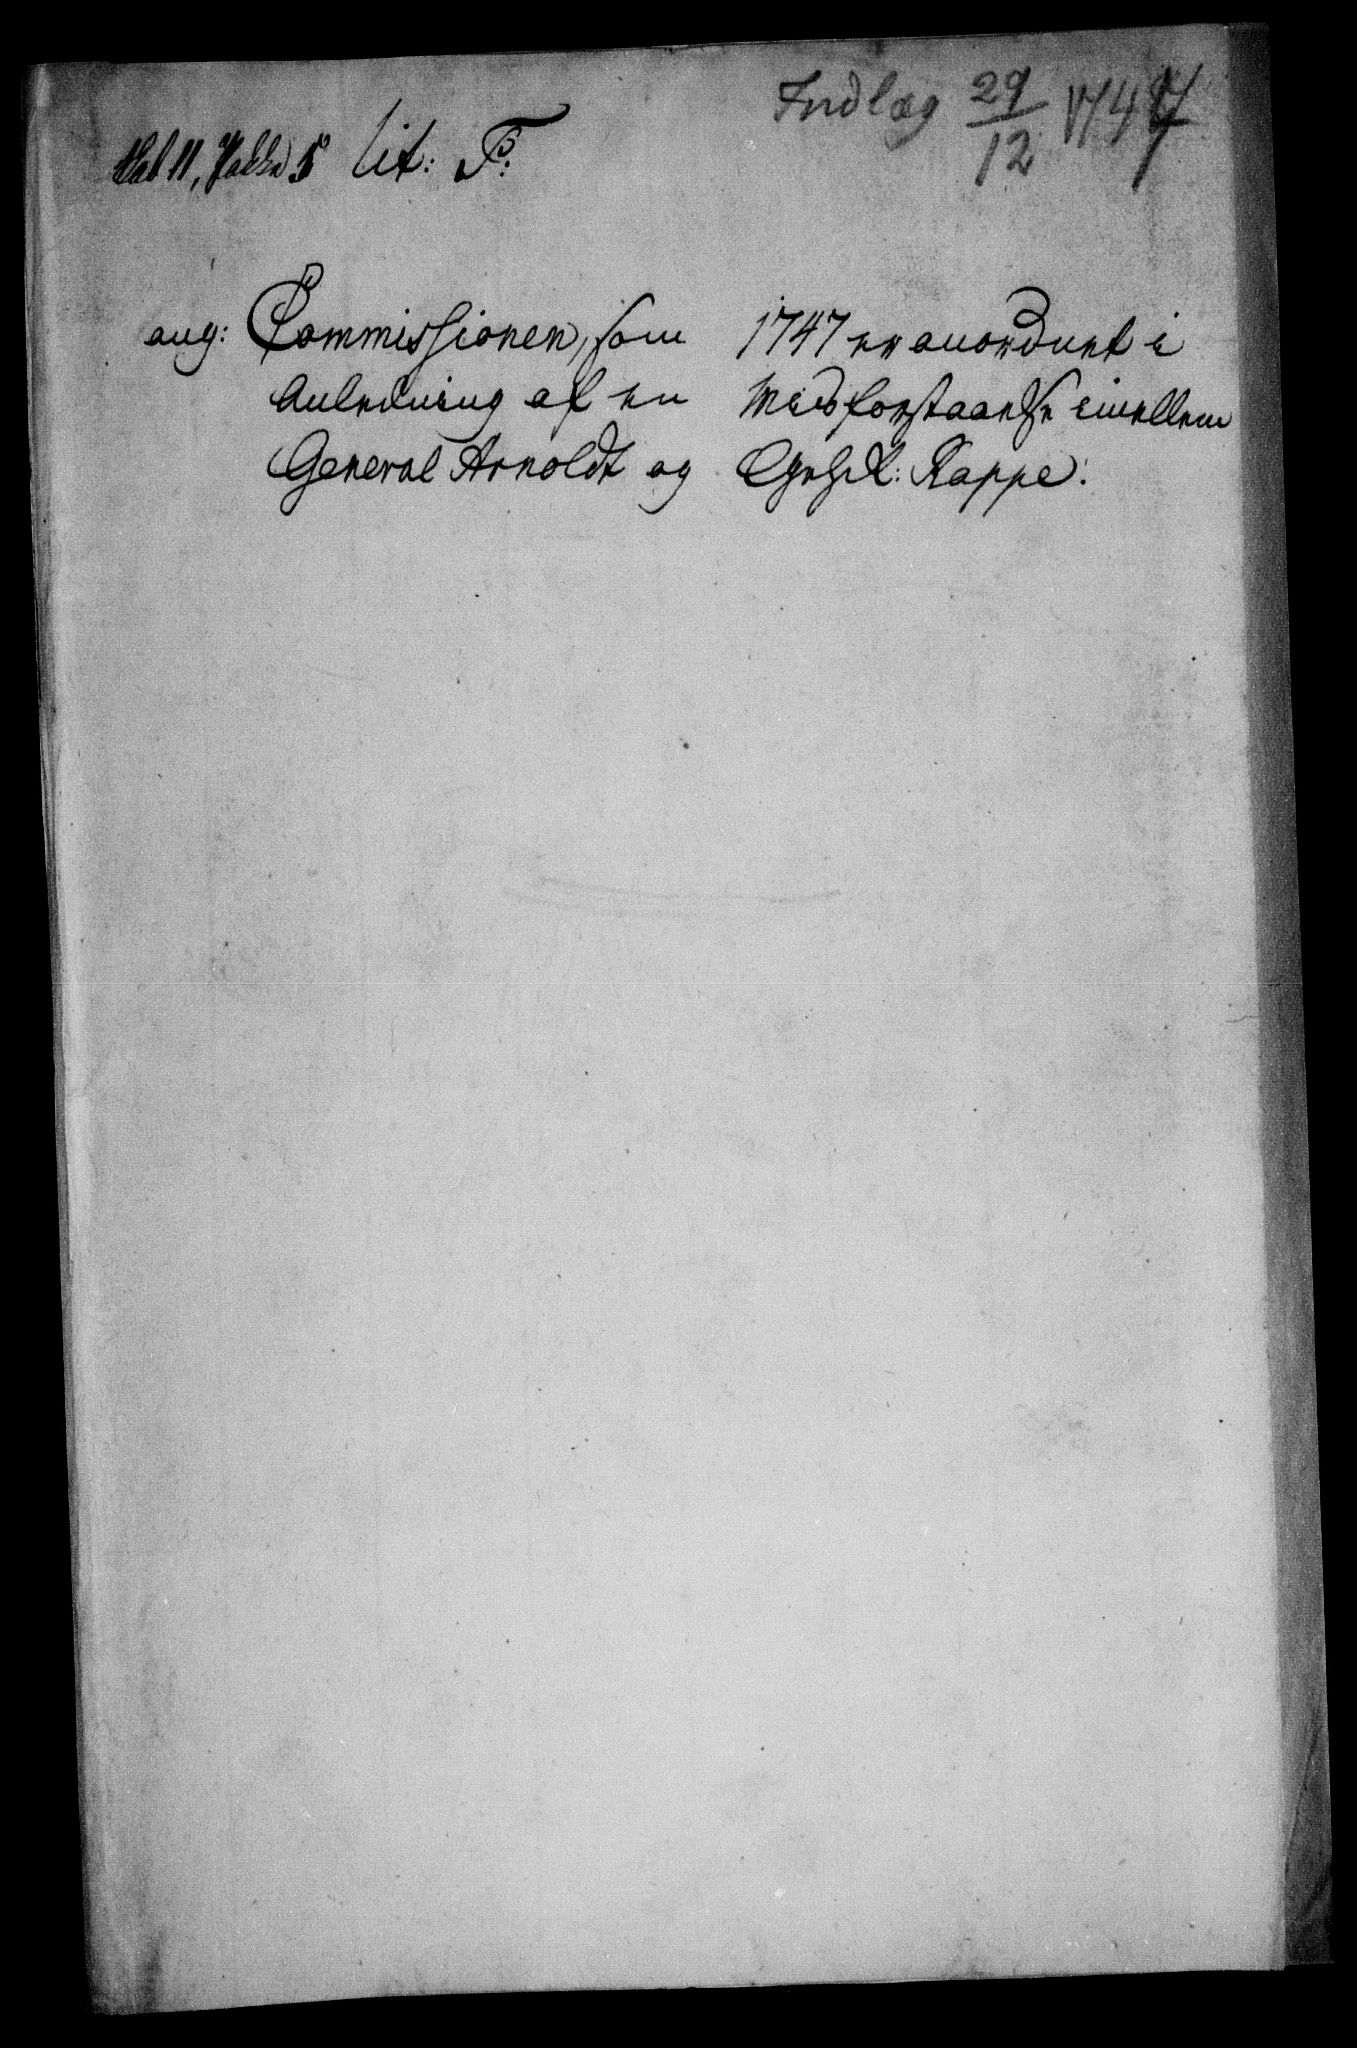 Indlæg 29/12 1747
Skab 11, Pakke 5 Lit: F:
ang: Commissionen, som 1747 er anordnet i
Anledning af en Misforstaaelse imellem
General Arnoldt og Rappe.